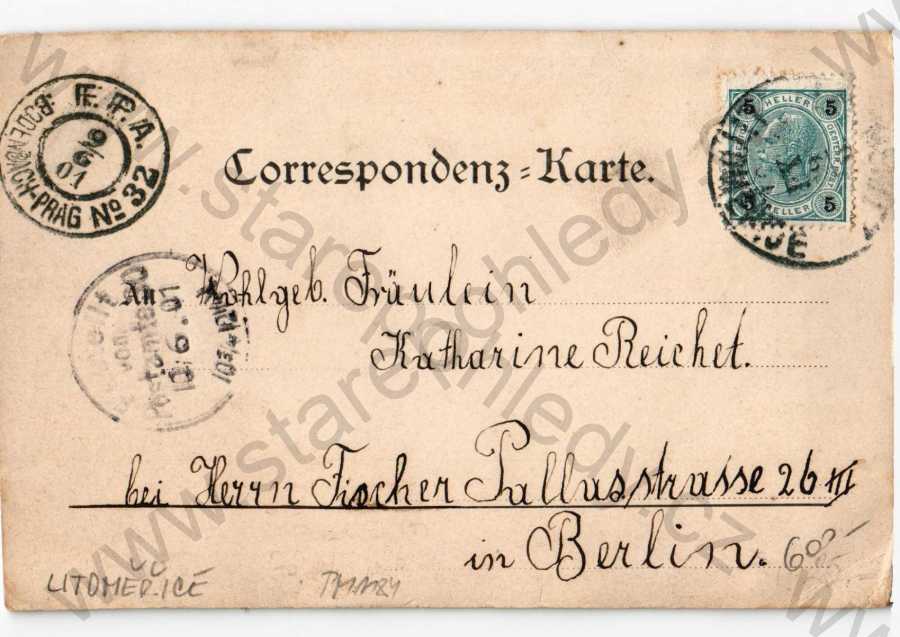 F.P.A.
BODENBACH-PRAG No 32
9/6
01
5 HELLER 5
5 HELLER 5
Correspondenz-Karte.
An Wohlgeb. Fräulein
Katharine Reichet.
Bestellt
vom
Postamte
10. 6. 01
bei Herrn Fischer Pallasstrasse 26 III
in Berlin.
600-
LITOMĚŘICE
www.starepohledy.cz